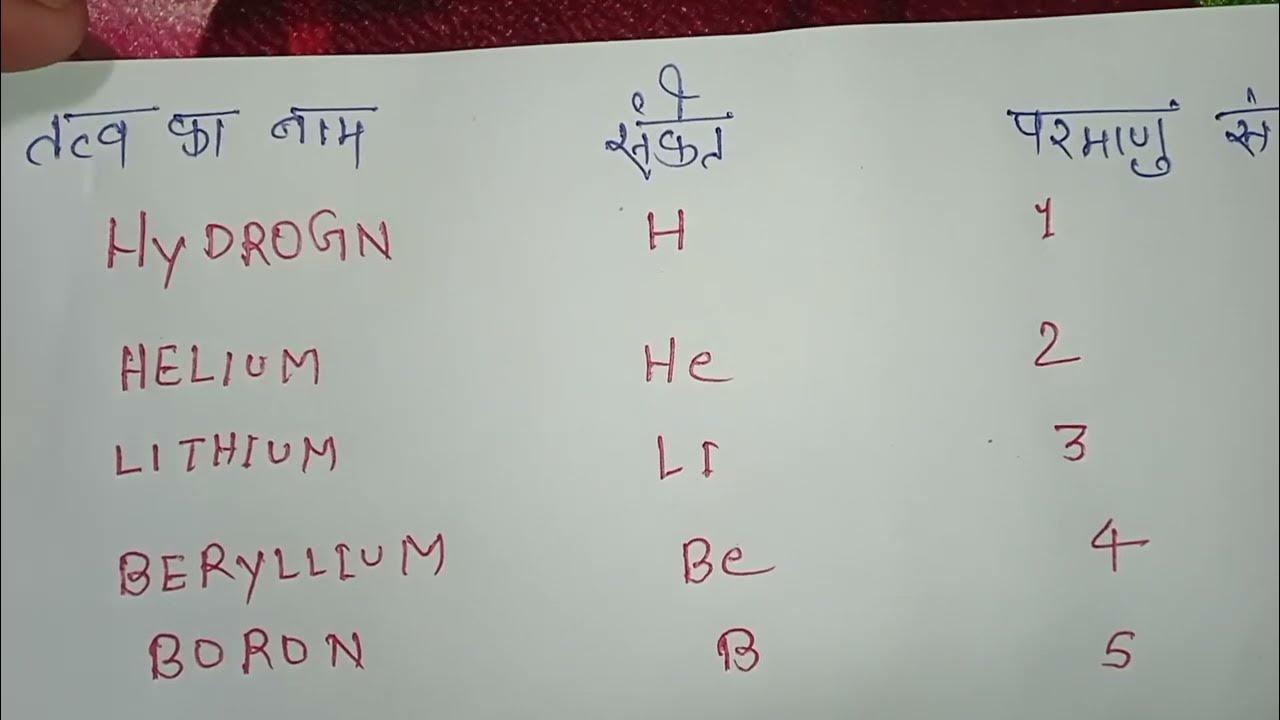 तत्व का नाम संकेत परमाणु सं
HYDROGN H 1
HELIUM He 2
LITHIUM LI 3
BERYLLIUM Be 4
BORON B 5